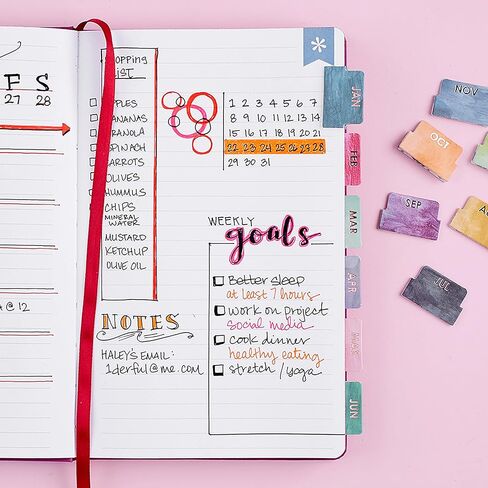 F S
27 28
@ 12
SHOPPING
LIST
APPLES
BANANAS
GRANOLA
SPINACH
CARROTS
OLIVES
HUMMUS
CHIPS
MINERAL
WATER
MUSTARD
KETCHUP
OLIVE OIL
NOTES
HALEY'S EMAIL:
1derful@me.com
1 2 3 4 5 6 7
8 9 10 11 12 13 14
15 16 17 18 19 20 21
22 23 24 25 26 27 28
29 30 31
WEEKLY
goals
Better sleep
at least 7 hours
work on project
social media
cook dinner
healthy eating
stretch / yoga
JAN
FEB
MAR
APR
MAY
JUN
NOV
OCT
SEP
JUL